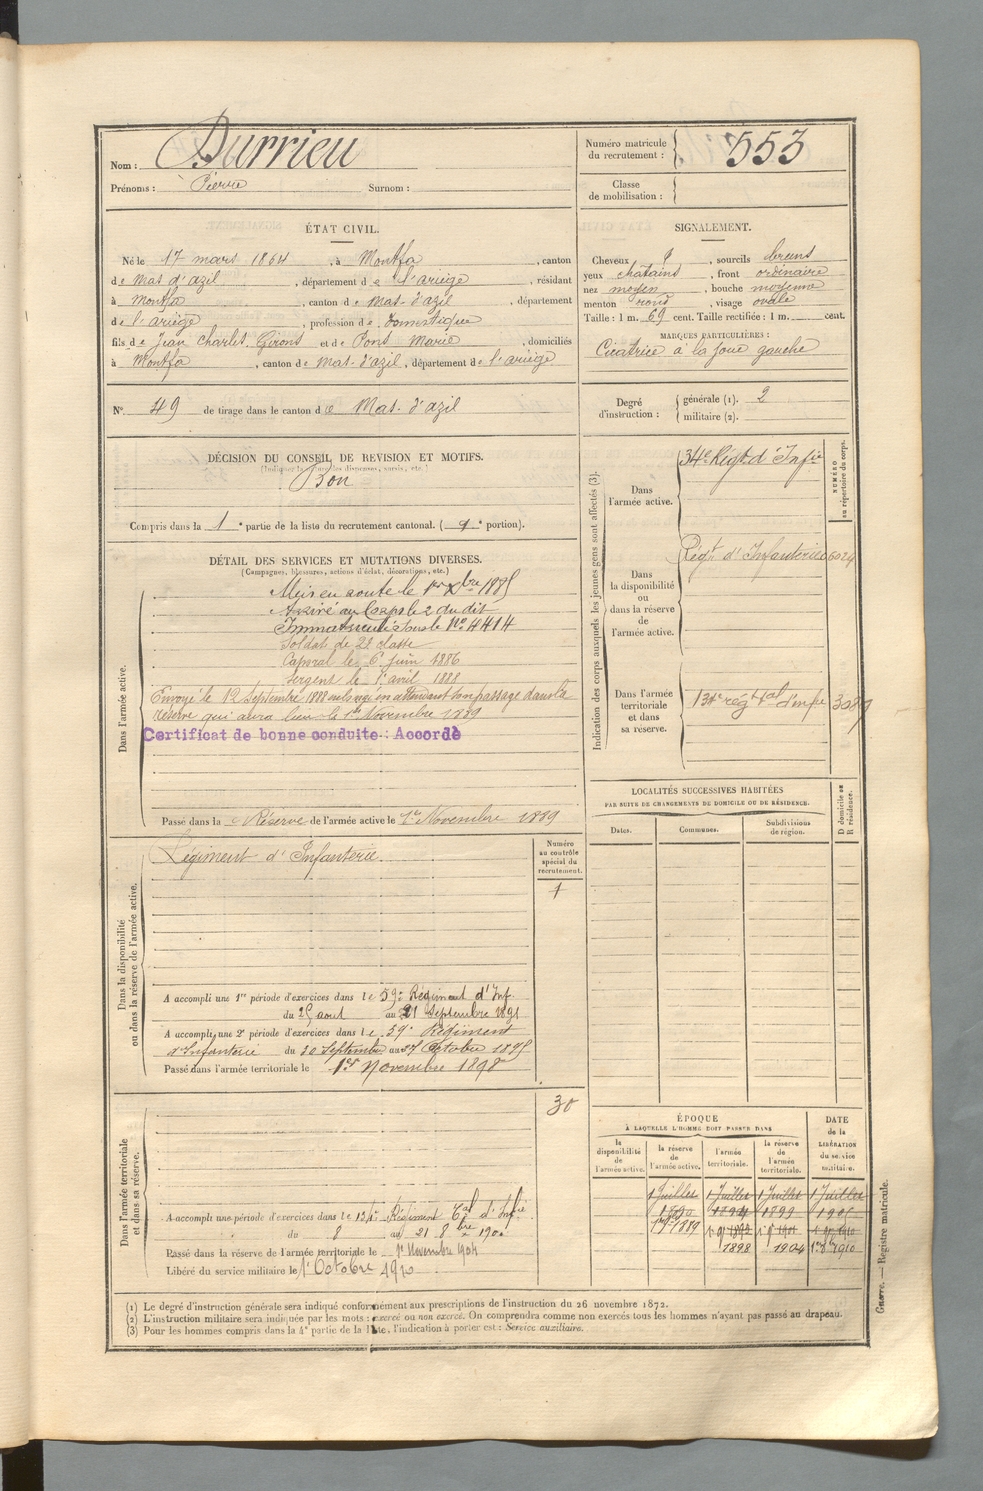 Nom : Durrieu
Prénoms : Pierre Surnom :
Numéro matricule du recrutement : 553
Classe de mobilisation :
ÉTAT CIVIL.
Né le 17 mars 1864, à Montfa, canton
de Mas d'azil, département de l'ariège, résidant
à Montfa, canton de Mas-d'azil, département
de l'ariège, profession de Domestique
fils de Jean Charles, Girons et de Pons Marie, domiciliés
à Montfa, canton de Mas-d'azil, département de l'ariège
N° 49 de tirage dans le canton de Mas-d'azil
SIGNALEMENT.
Cheveux, sourcils bruns
yeux chatains, front ordinaire
nez moyen, bouche moyenne
menton rond, visage ovale
Taille : 1 m. 69 cent. Taille rectifiée : 1 m. cent.
MARQUES PARTICULIÈRES :
Cicatrice à la joue gauche
Degré d'instruction : générale (1). 2
militaire (2).
DÉCISION DU CONSEIL DE REVISION ET MOTIFS.
(Indiquer la nature des dispenses, sursis, etc.)
Bon
Compris dans la 1e partie de la liste du recrutement cantonal. ( portion).
DÉTAIL DES SERVICES ET MUTATIONS DIVERSES.
(Campagnes, blessures, actions d'éclat, décorations, etc.)
Dans l'armée active.
Mis en route le 1er Xbre 1885
Arrivé au Corps le 2 du dit
Immatriculé sous le No 4414
Soldat de 2e classe
Caporal le 6 juin 1886
Sergent le 1er avril 1888
Envoyé le 12 Septembre 1888 en congé en attendant son passage dans la
réserve qui aura lieu le 1er Novembre 1889
Certificat de bonne conduite : Accordé
Passé dans la Réserve de l'armée active le 1er Novembre 1889
Indication des corps auxquels les jeunes gens sont affectés (3).
NUMÉRO au répertoire du corps.
Dans l'armée active.
34e Régt d'Infie
Dans la disponibilité ou dans la réserve de l'armée active.
Régt d'Infanterie 6024
Dans l'armée territoriale et dans sa réserve.
134e régt tal d'infie 3089
LOCALITÉS SUCCESSIVES HABITÉES
PAR SUITE DE CHANGEMENTS DE DOMICILE OU DE RÉSIDENCE.
Dates. Communes. Subdivisions de région. D domicile ou R résidence.
Dans la disponibilité ou dans la réserve de l'armée active.
Régiment d'Infanterie
Numéro au contrôle spécial du recrutement.
1
A accompli une 1re période d'exercices dans le 59e Régiment d'Inf.
du 25 aout au 21 Septembre 1891
A accompli une 2e période d'exercices dans le 59e Régiment
d'Infanterie du 30 Septembre au 27 Octobre 1895
Passé dans l'armée territoriale le 1er Novembre 1898
Dans l'armée territoriale et dans sa réserve.
30
A accompli une période d'exercices dans le 134e Régiment Tal d'Infie
du 8 au 21 8bre 1900
Passé dans la réserve de l'armée territoriale le 1er Novembre 1904
Libéré du service militaire le 1er Octobre 1910
ÉPOQUE
À LAQUELLE L'HOMME DOIT PASSER DANS
DATE de la LIBÉRATION du service militaire.
la disponibilité de l'armée active. la réserve de l'armée active. l'armée territoriale. la réserve de l'armée territoriale.
1 Juillet 1 Juillet 1 Juillet 1 Juillet
1890 1894 1899 1905
1er 9bre 1889
1898 1904 1er 8bre 1910
(1) Le degré d'instruction générale sera indiqué conformément aux prescriptions de l'instruction du 26 novembre 1872.
(2) L'instruction militaire sera indiquée par les mots : exercé ou non exercé. On comprendra comme non exercés tous les hommes n'ayant pas passé au drapeau.
(3) Pour les hommes compris dans la 4e partie de la liste, l'indication à porter est : Service auxiliaire.
Guerre. — Registre matricule.